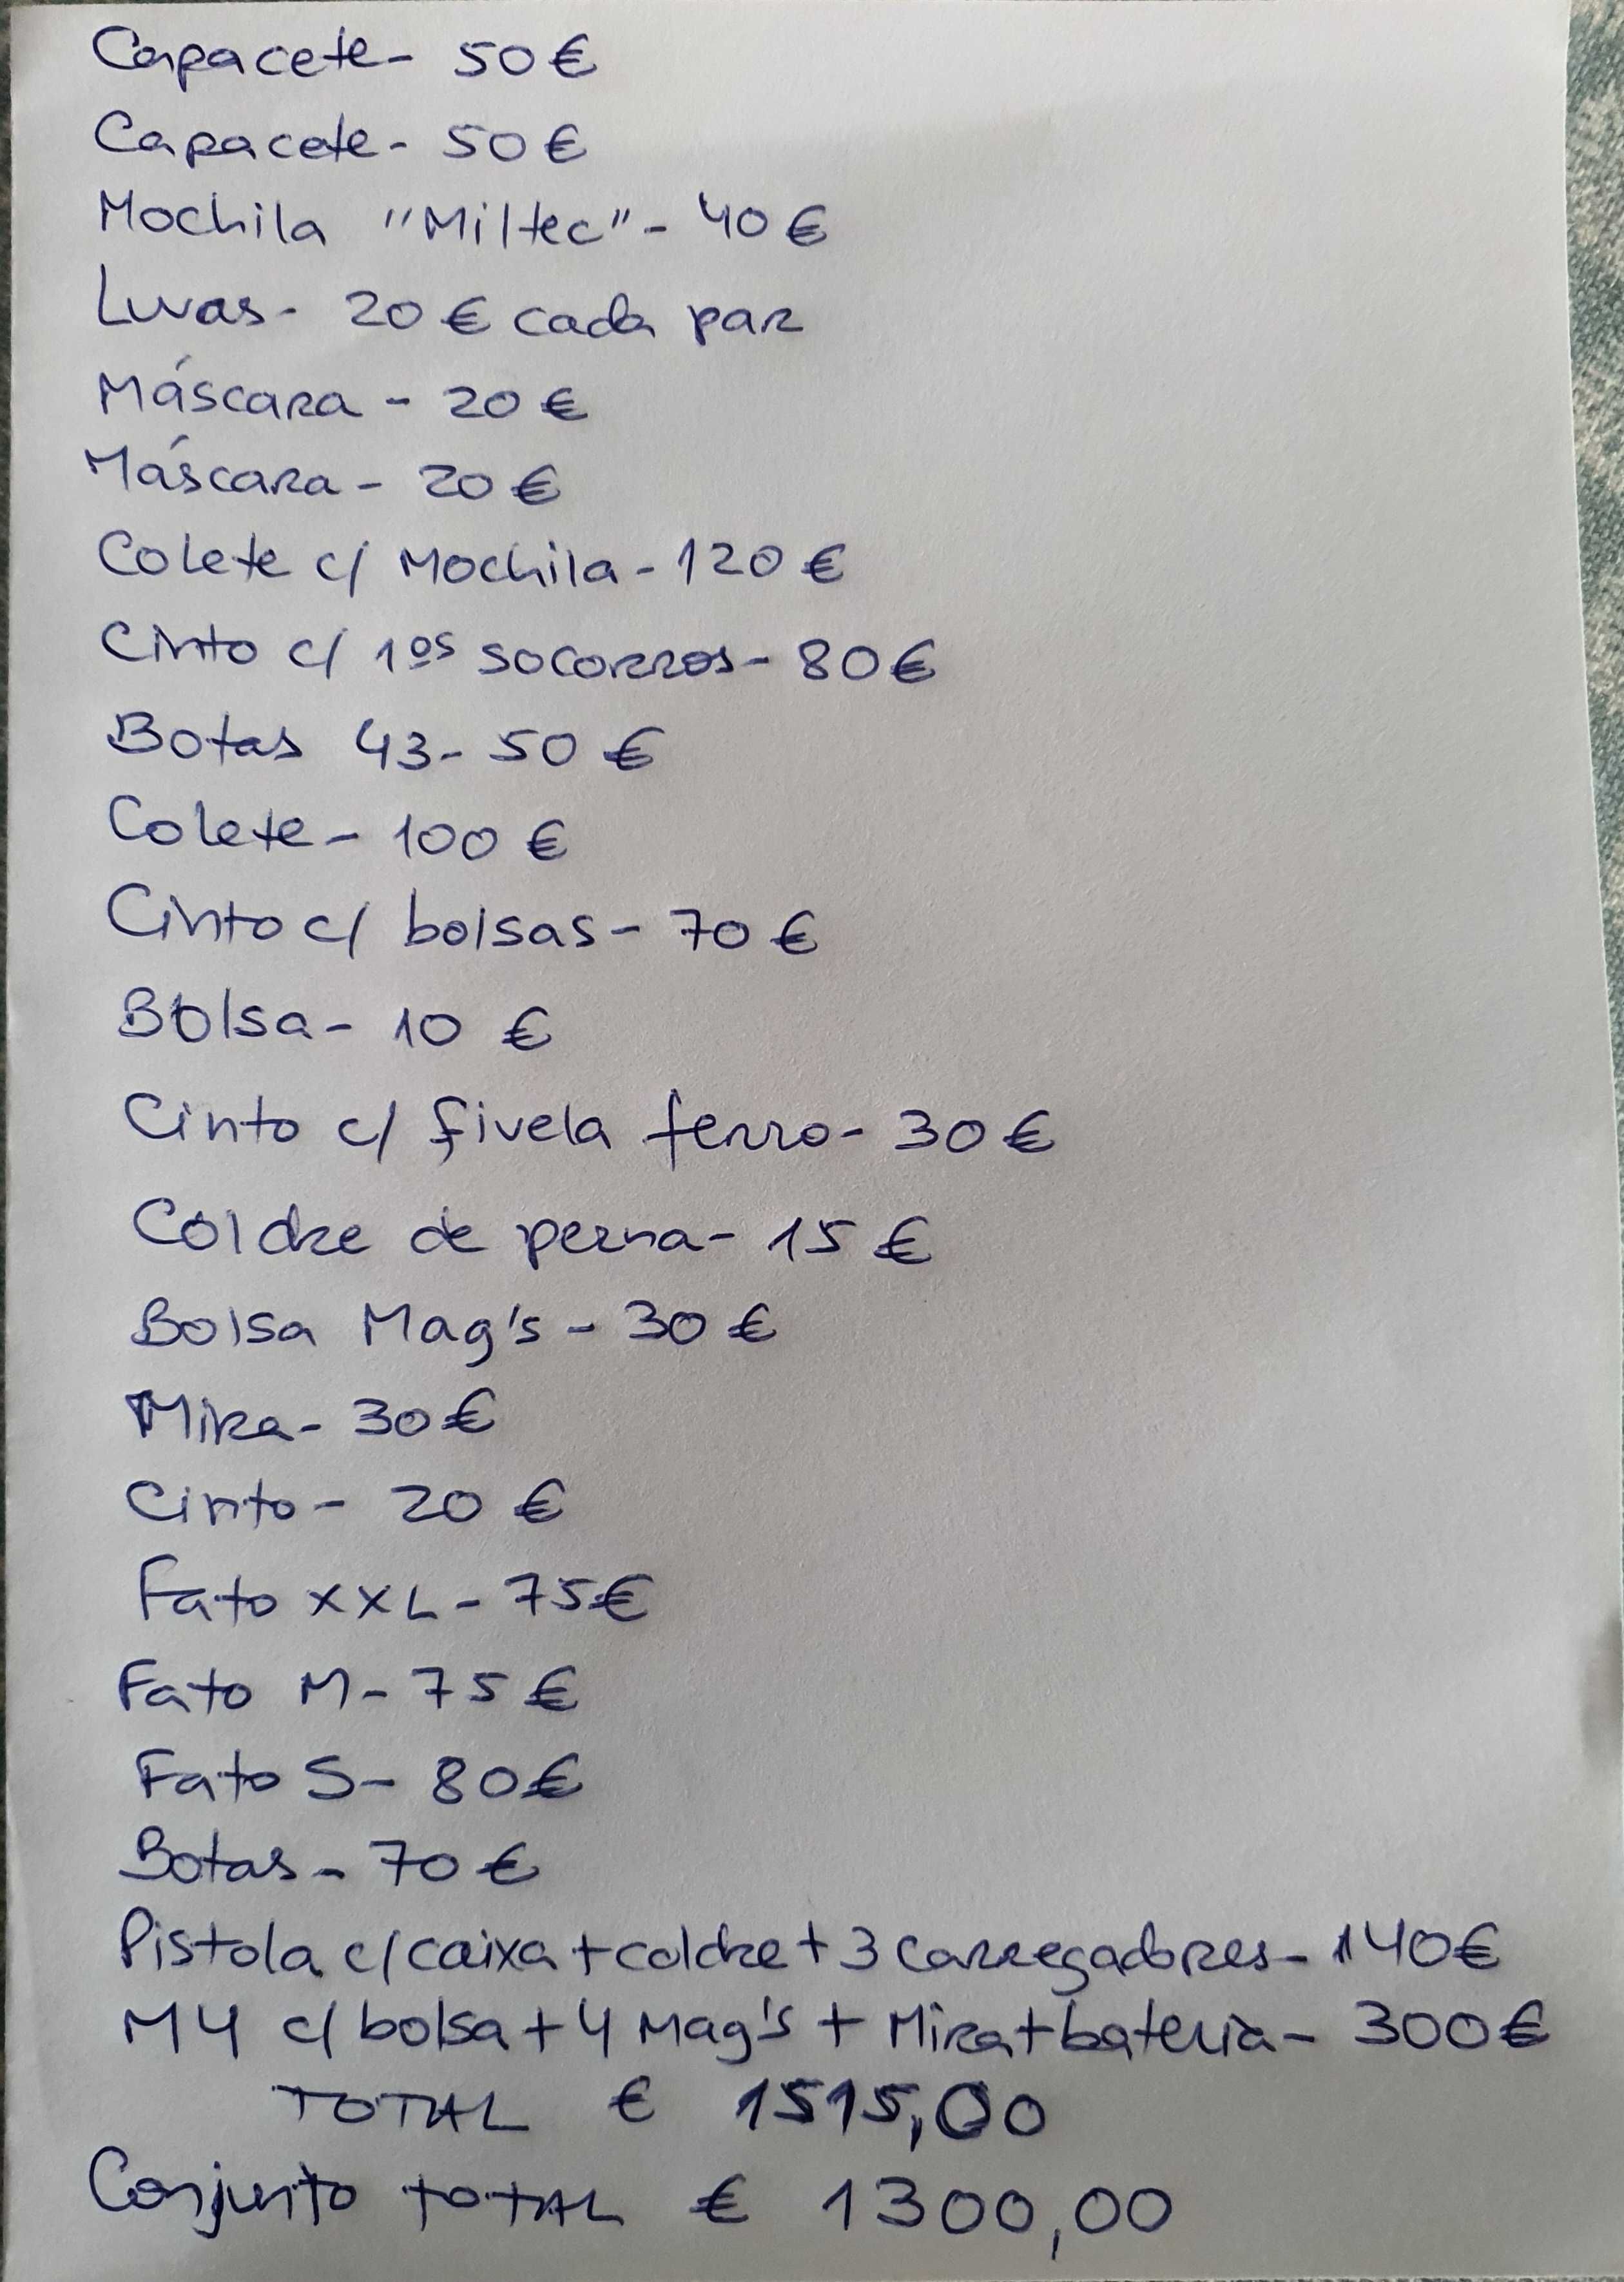 Capacete- 50€
Capacete- 50€
Mochila "Miltec"- 40€
Luvas- 20€ cada par
Máscara - 20€
Máscara - 20€
Colete c/ Mochila - 120€
Cinto c/ 1ºs socorros- 80€
Botas 43- 50€
Colete- 100€
Cinto c/ bolsas- 70€
Bolsa- 10 €
Cinto c/ fivela ferro- 30€
Coldre de perna- 15€
Bolsa Mag's - 30€
Mira- 30€
Cinto- 20€
Fato XXL- 75€
Fato M- 75€
Fato S- 80€
Botas- 70€
Pistola c/caixa+coldre+3 carregadores- 140€
M4 c/bolsa+4 Mag's + Mira+bateria- 300€
TOTAL € 1515,00
Conjunto TOTAL € 1300,00